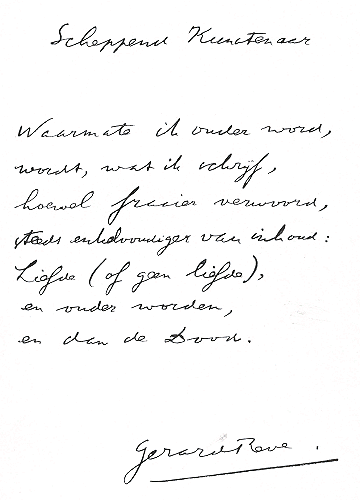 Scheppend Kunstenaar
Waarmate ik ouder word,
wordt, wat ik schrijf,
hoewel fraaier verwoord,
steeds enkelvoudiger van inhoud:
Liefde (of geen liefde),
en ouder worden,
en dan de Dood.
Gerard Reve.